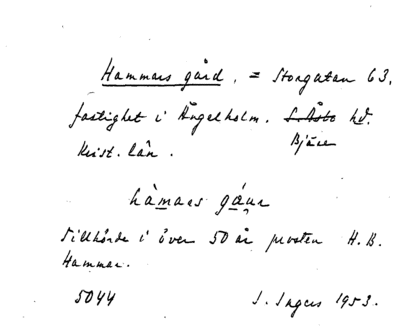 Hammars gård, = Storgatan 63,
fastighet i Ängelholm. S. Åsbo hd.
Bjäre
Krist. län.
hàmars gáu̯r
Tillhörde i över 50 år prosten H. B.
Hammar.
5044 I. Ingers 1953.